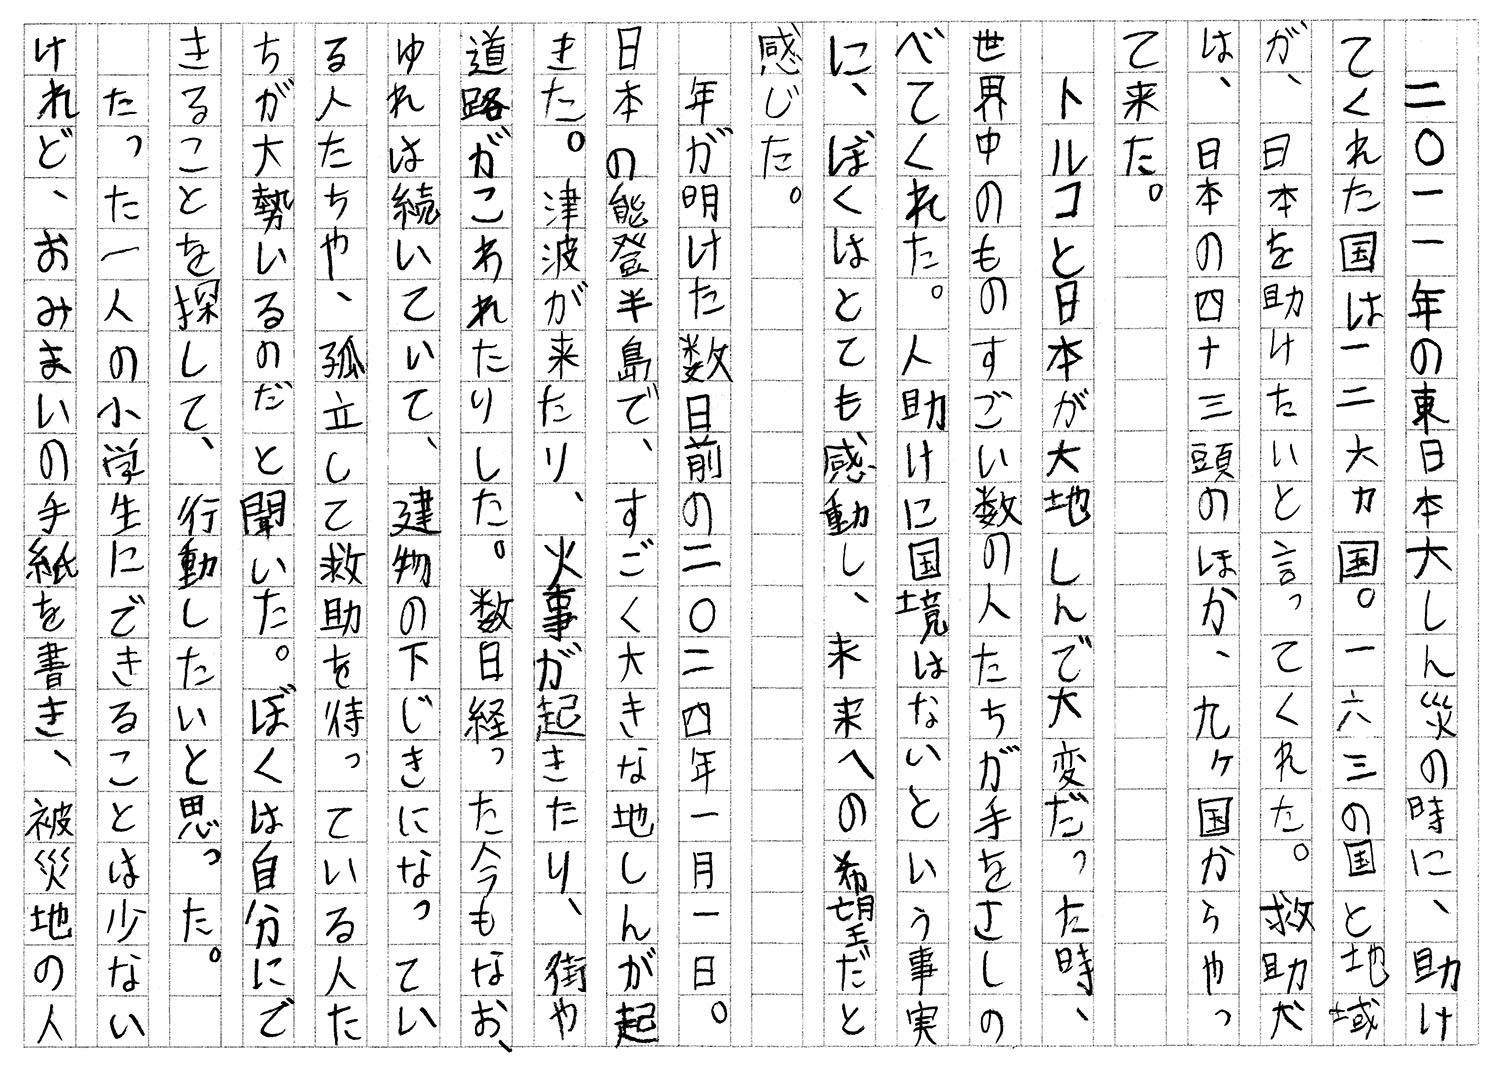 二〇一一年の東日本大しん災の時に、助け
てくれた国は一二大カ国。一六三の国と地域
が、日本を助けたいと言ってくれた。救助犬
は、日本の四十三頭のほか、九ヶ国からやっ
て来た。
トルコと日本が大地しんで大変だった時、
世界中のものすごい数の人たちが手をさしの
べてくれた。人助けに国境はないという事実
に、ぼくはとても感動し、未来への希望だと
感じた。
年が明けた数日前の二〇二四年一月一日。
日本の能登半島で、すごく大きな地しんが起
きた。津波が来たり、火事が起きたり、街や
道路がこわれたりした。数日経った今もなお、
ゆれは続いていて、建物の下じきになってい
る人たちや、孤立して救助を待っている人た
ちが大勢いるのだと聞いた。ぼくは自分にで
きることを探して、行動したいと思った。
たった一人の小学生にできることは少ない
けれど、おみまいの手紙を書き、被災地の人